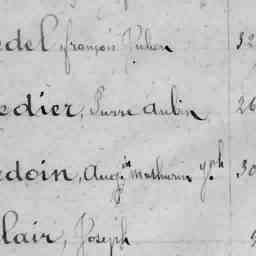 edel, françois Julien 32
edier, Pierre Aubin 26
edoin, Aug.in Mathurin J.ph 30
lair, Joseph